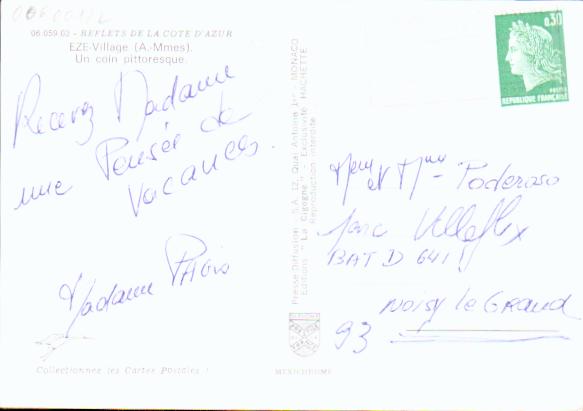 06.059.02 - REFLETS DE LA COTE D'AZUR
EZE-Village (A.-Mmes).
Un coin pittoresque.
Recevez Madame
une Pensée de
Vacances.
Madame
Collectionnez les Cartes Postales !
Presse-Diffusion S.A. 12, Quai Antoine 1er - MONACO
Editions "La Cigogne" - Exclusivité HACHETTE
Reproduction interdite
MEXICHROME
0,30
POSTES
REPUBLIQUE FRANÇAISE
et Mme - Poderoso
Parc Villeflix
BAT D 641
NOISY le GRAND
93